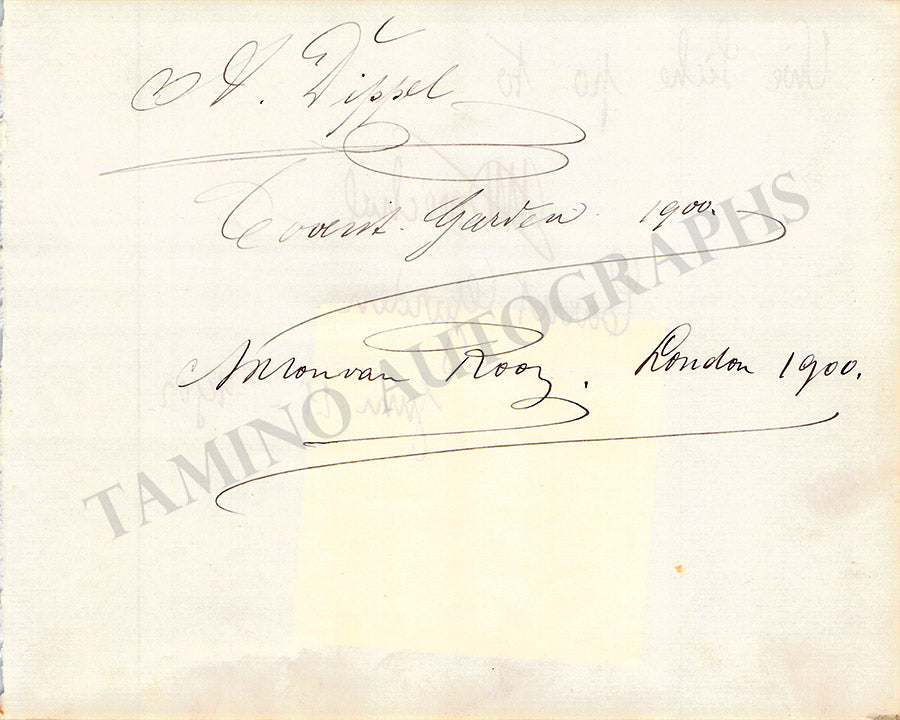 A. Dippel
Covent Garden 1900.
Anton van Rooy. London 1900.
TAMINO AUTOGRAPHS